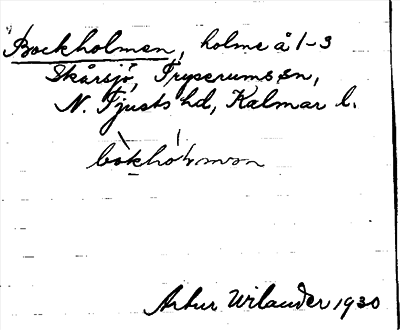 Bockholmen, holme å 1-3
Skårsjö, Tryserums sn,
N. Tjusts hd, Kalmar l.
Artur Wilander 1930